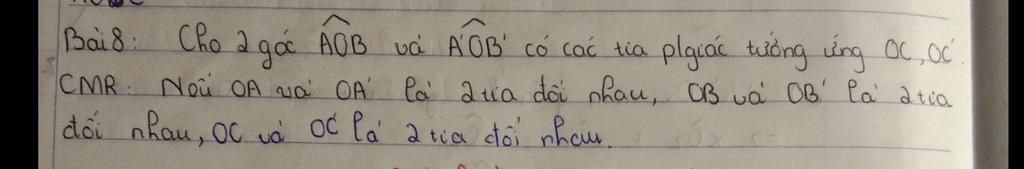 Bài 8: Cho 2 góc AOB và A'OB' có các tia p/giác tương ứng OC, OC'.
CMR: Nếu OA và OA' là 2 tia đối nhau, OB và OB' là 2 tia
đối nhau, OC và OC' là 2 tia đối nhau.